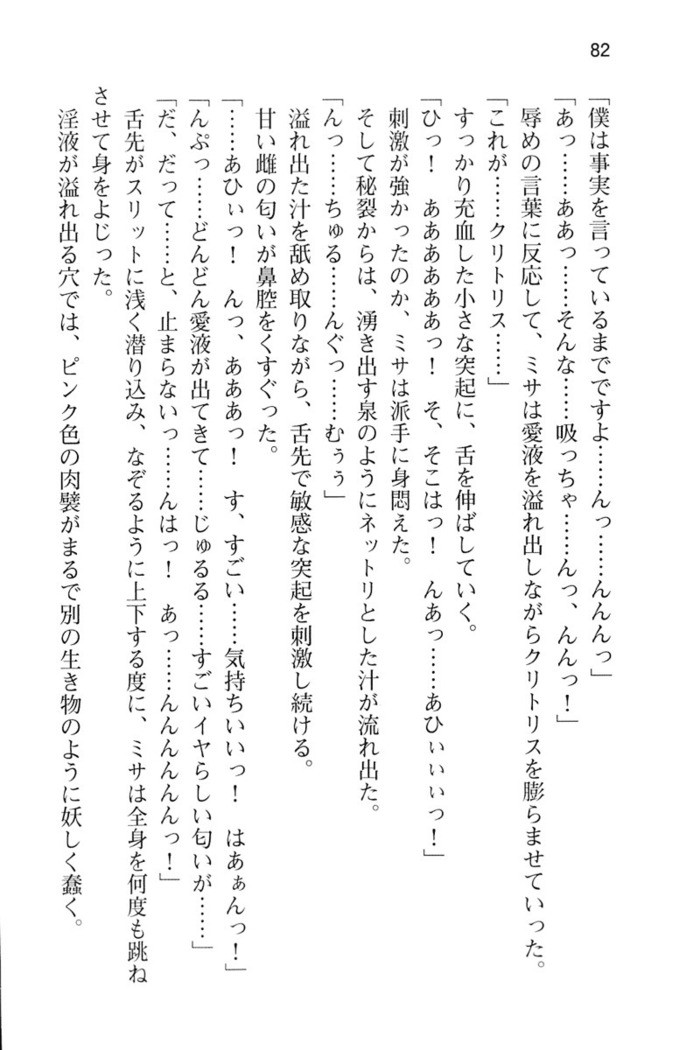 82
「僕は事実を言っているまでですよ……んっ……んんんっ」
「あっ……ああっ……そんな……吸っちゃ……んっ、んんっ！」
辱めの言葉に反応して、ミサは愛液を溢れ出しながらクリトリスを膨らませていった。
「これが……クリトリス……」
すっかり充血した小さな突起に、舌を伸ばしていく。
「ひっ！　ああああああっ！　そ、そこはっ！　んあっ……あひぃぃぃっ！」
刺激が強かったのか、ミサは派手に身悶えた。
そして秘裂からは、湧き出す泉のようにネットリとした汁が流れ出た。
「んっ……ちゅる……んぐっ……むぅぅ」
溢れ出た汁を舐め取りながら、舌先で敏感な突起を刺激し続ける。
甘い雌の匂いが鼻腔をくすぐった。
「……あひぃっ！　んっ、あああっ！　す、すごい……気持ちいいっ！　はあぁんっ！」
「んぷっ……どんどん愛液が出てきて……じゅるる……すごいイヤらしい匂いが……」
「だ、だって……と、止まらないっ……んはっ！　あっ……んんんんんんっ！」
舌先がスリットに浅く潜り込み、なぞるように上下する度に、ミサは全身を何度も跳ね
させて身をよじった。
淫液が溢れ出る穴では、ピンク色の肉襞がまるで別の生き物のように妖しく蠢く。